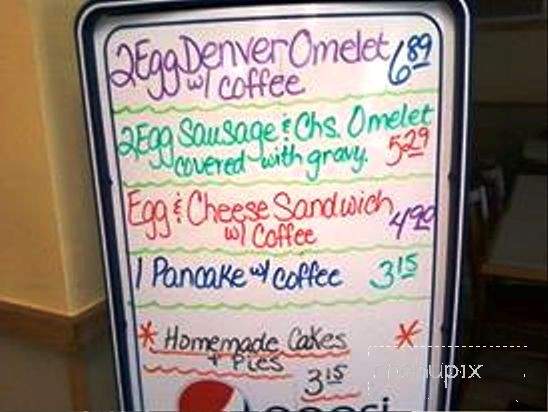 2 Egg Denver Omelet 6.89
w/ coffee
2 Egg Sausage & Chs. Omelet
covered with gravy. 5.29
Egg & Cheese Sandwich
w/ Coffee 4.90
1 Pancake w/ coffee 3.15
* Homemade Cakes *
+ Pies
3.15